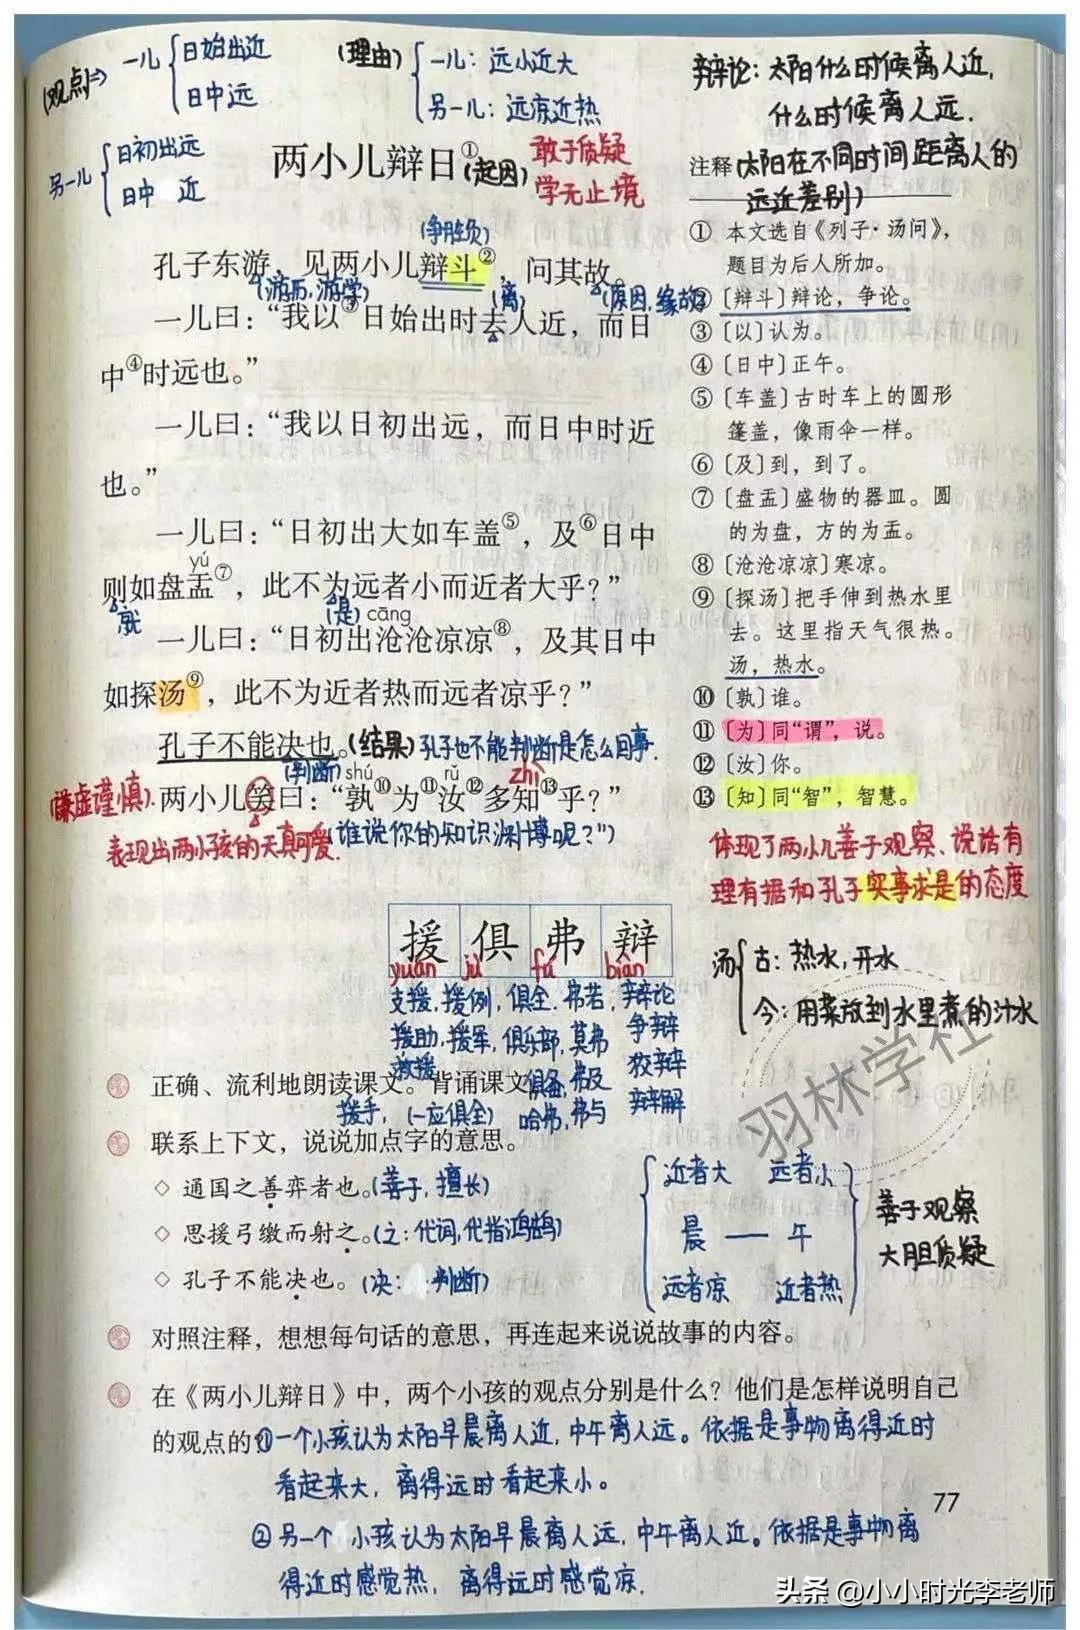 (观点)⇒ 一儿 日始出近
日中远
另一儿 日初出远
日中 近
(理由) 一儿：远小近大
另一儿：远凉近热
辩论：太阳什么时候离人近，
什么时候离人远.
(太阳在不同时间距离人的
远近差别)
两小儿辩日①(起因)
敢于质疑
学无止境
(争胜负)
孔子东游，见两小儿辩斗②，问其故。
(游历,游学) (离) (原因,缘故)
一儿曰：“我以③日始出时去人近，而日
中④时远也。”
一儿曰：“我以日初出远，而日中时近
也。”
一儿曰：“日初出大如车盖⑤，及⑥日中
yú
则如盘盂⑦，此不为远者小而近者大乎？”
就 (是) cāng
一儿曰：“日初出沧沧凉凉⑧，及其日中
如探汤⑨，此不为近者热而远者凉乎？”
孔子不能决也。(结果)孔子也不能判断是怎么回事.
(判断) shú rǔ zhì
(谦虚谨慎).两小儿笑曰：“孰⑩为⑪汝⑫多知⑬乎？”
表现出两小孩的天真可爱. (谁说你的知识渊博呢？”)
注释
① 本文选自《列子·汤问》，
题目为后人所加。
②〔辩斗〕辩论，争论。
③〔以〕认为。
④〔日中〕正午。
⑤〔车盖〕古时车上的圆形
篷盖，像雨伞一样。
⑥〔及〕到，到了。
⑦〔盘盂〕盛物的器皿。圆
的为盘，方的为盂。
⑧〔沧沧凉凉〕寒凉。
⑨〔探汤〕把手伸到热水里
去。这里指天气很热。
汤，热水。
⑩〔孰〕谁。
⑪〔为〕同“谓”，说。
⑫〔汝〕你。
⑬〔知〕同“智”，智慧。
体现了两小儿善于观察、说话有
理有据和孔子实事求是的态度
汤 古：热水,开水
今：用菜放到水里煮的汁水
援 俱 弗 辩
yuán jù fú biàn
支援,援例, 俱全. 弗若, 辩论
援助,援军, 俱乐部, 莫弗 争辩
救援 俱备, 弗及 狡辩
援手, (一应俱全) 哈弗, 弗与 辩解
正确、流利地朗读课文。背诵课文。
联系上下文，说说加点字的意思。
◇ 通国之善弈者也。(善于,擅长)
◇ 思援弓缴而射之。(之：代词,代指鸿鹄)
◇ 孔子不能决也。(决： 判断)
近者大 远者小
晨 — 午
远者凉 近者热
善于观察
大胆质疑
对照注释，想想每句话的意思，再连起来说说故事的内容。
在《两小儿辩日》中，两个小孩的观点分别是什么？他们是怎样说明自己
的观点的？①一个小孩认为太阳早晨离人近,中午离人远。依据是事物离得近时
看起来大，离得远时看起来小。
②另一个 小孩认为太阳早晨离人远,中午离人近。依据是事物离
得近时感觉热，离得远时感觉凉.
77
羽林学社
头条 @小小时光李老师